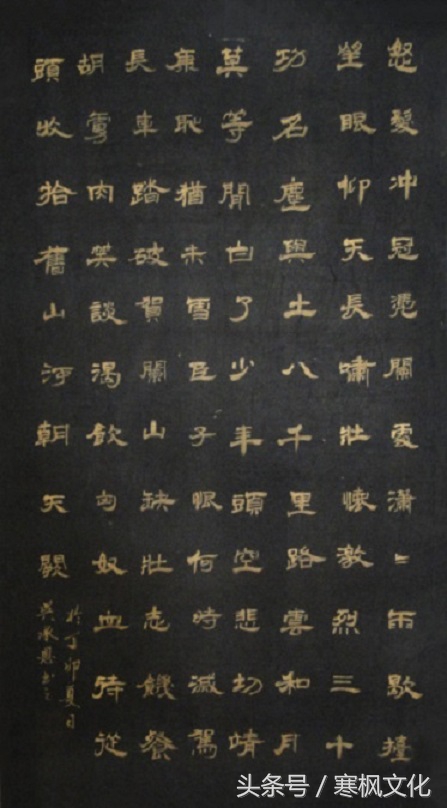 怒髮冲冠憑闌處瀟〻雨歇擡
望眼仰天長嘯壯懷激烈三十
功名塵與土八千里路雲和月
莫等閒白了少年頭空悲切靖
康恥猶未雪臣子恨何時滅駕
長車踏破賀闌山缺壯志饑餐
胡虜肉笑談渴飲匈奴血待從
頭收拾舊山河朝天闕
於丁卯夏日
头条号 / 寒枫文化